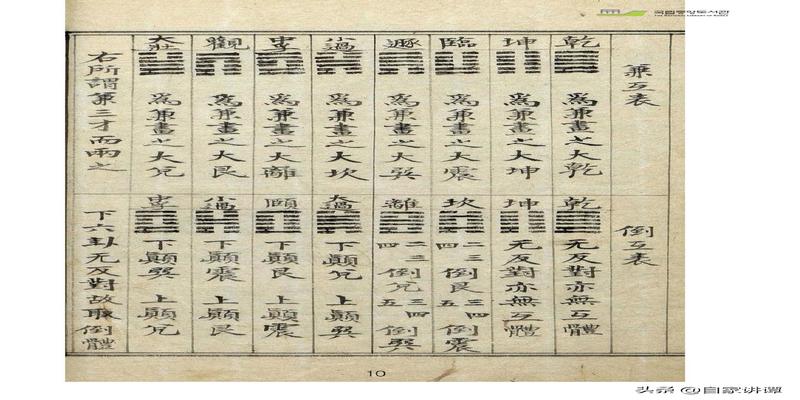 국립중앙도서관
THE NATIONAL LIBRARY OF KOREA
兼互表
乾
爲兼畫之大乾
坤
爲兼畫之大坤
臨
爲兼畫之大震
遯
爲兼畫之大巽
小過
爲兼畫之大坎
中孚
爲兼畫之大離
觀
爲兼畫之大艮
大壯
爲兼畫之大兌
右所謂兼三才而兩之
倒互表
乾
无反對亦無互體
坤
无反對亦無互體
坎
二三四倒艮三四五倒震
離
二三四倒兌三四五倒巽
大過
下顚兌上顚巽
頤
下顚艮上顚震
小過
下顚震上顚艮
中孚
下顚巽上顚兌
下六卦无反對故取倒體
10
头条 @自家讲谭